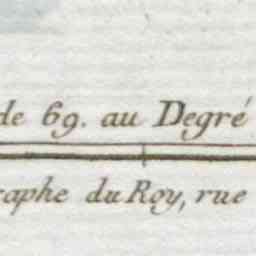 de 69. au Degré
raphe du Roy, rue